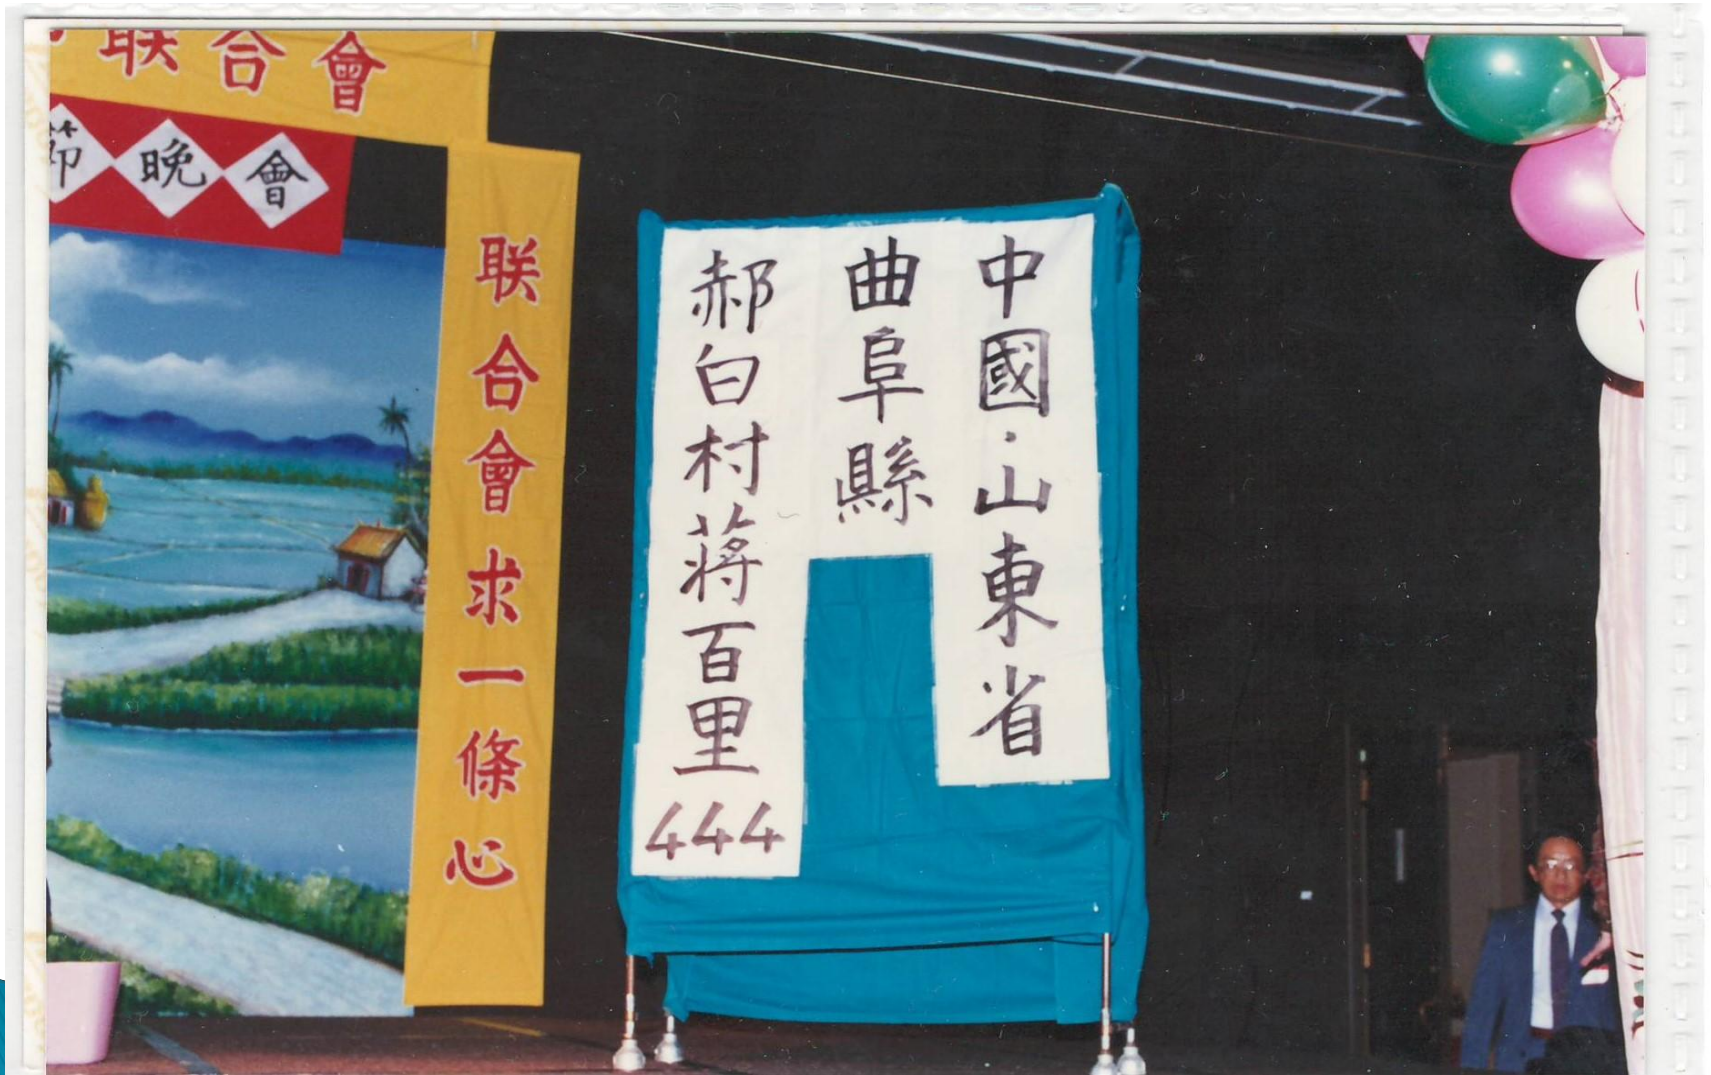 联合會
節晚會
联合會求一條心
中國·山東省
曲阜縣
郝白村蒋百里444